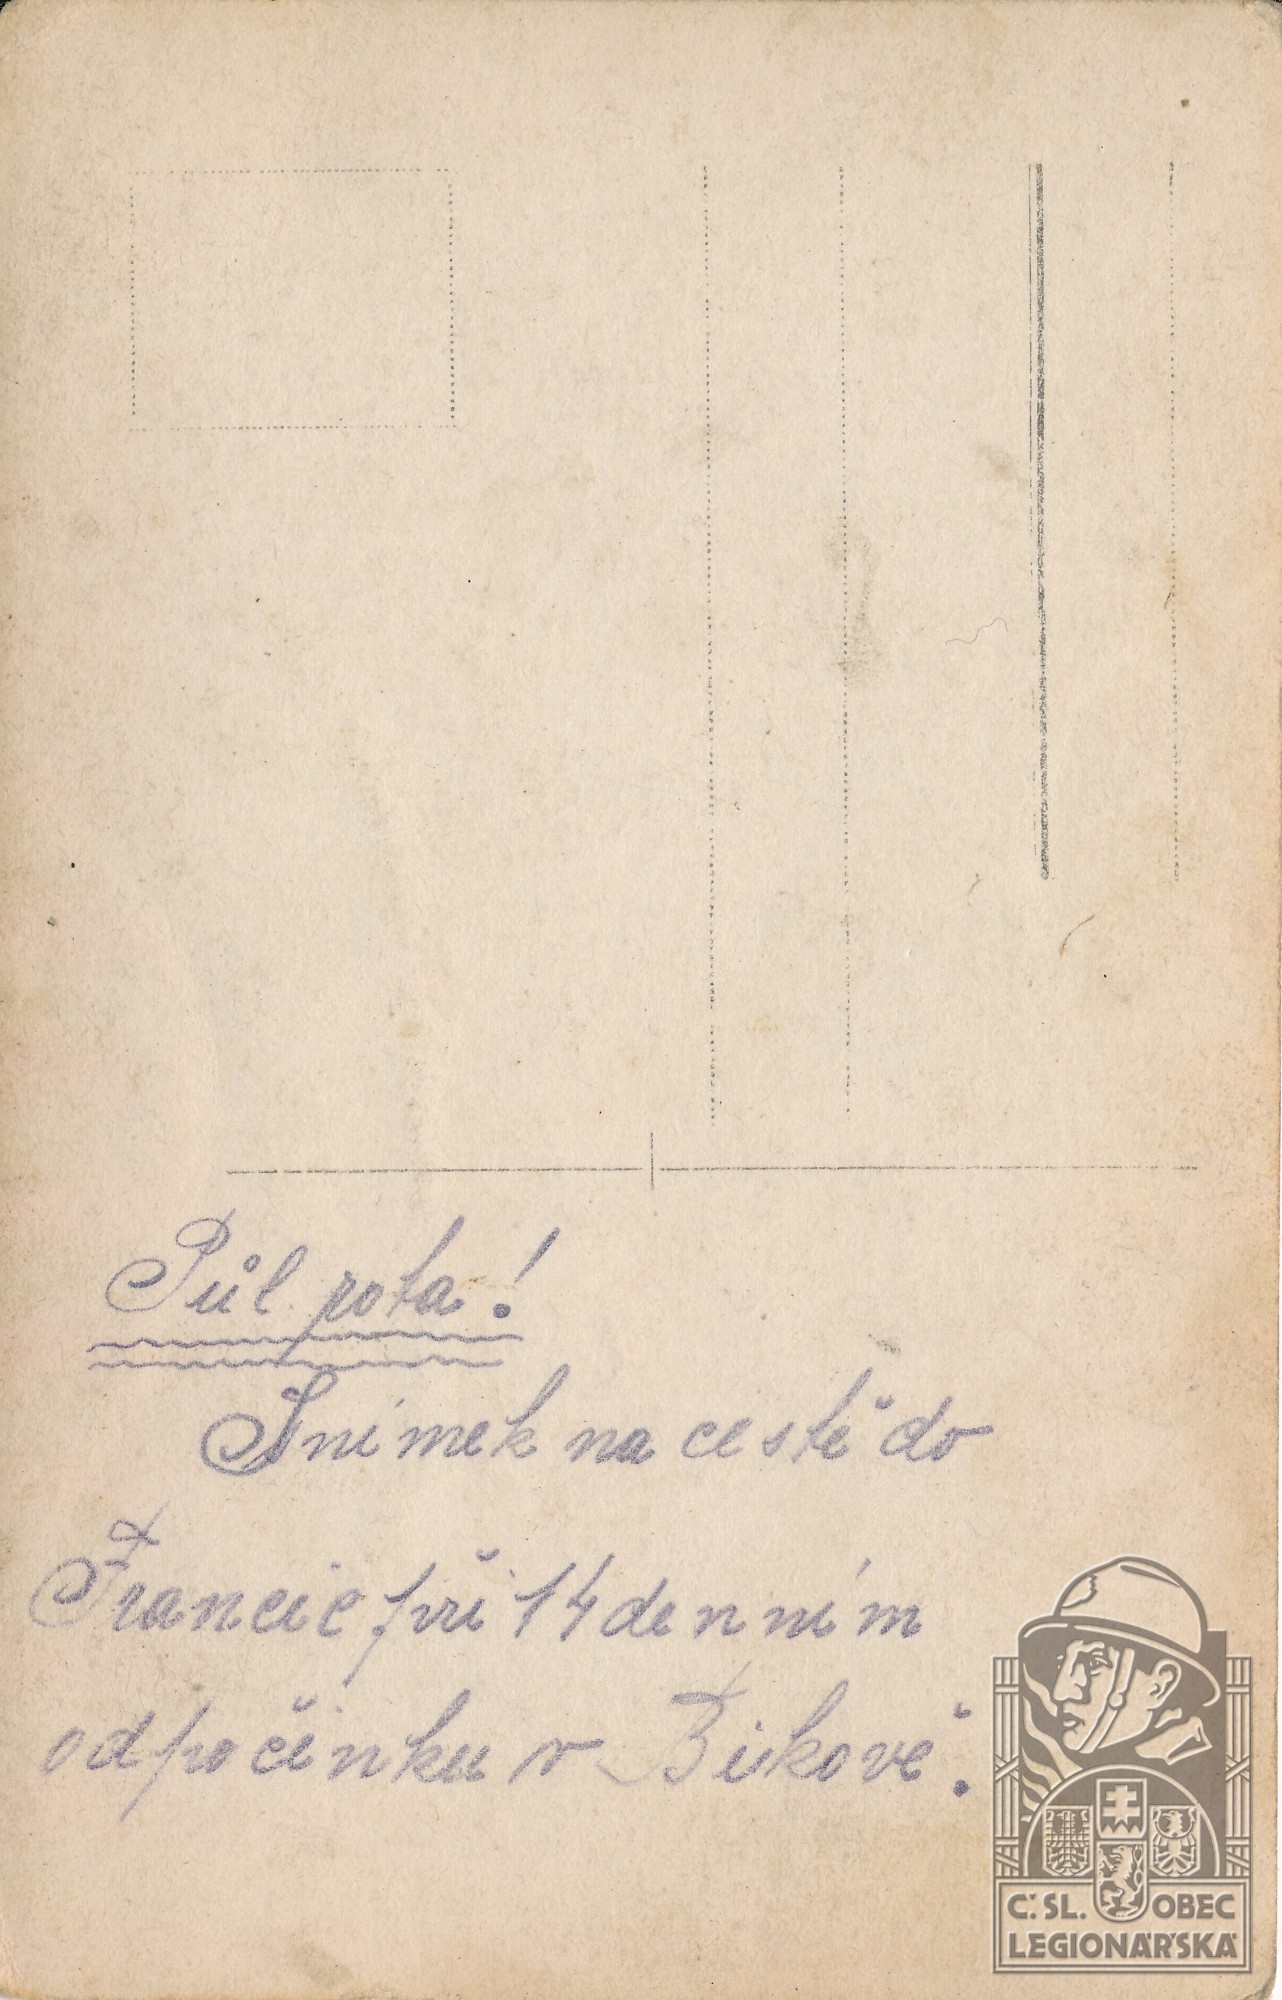 Půl rota!
Snímek na cestě do
Francie při 14 denním
odpočinku v Bikově.
Č.SL. OBEC
LEGIONÁŘSKÁ